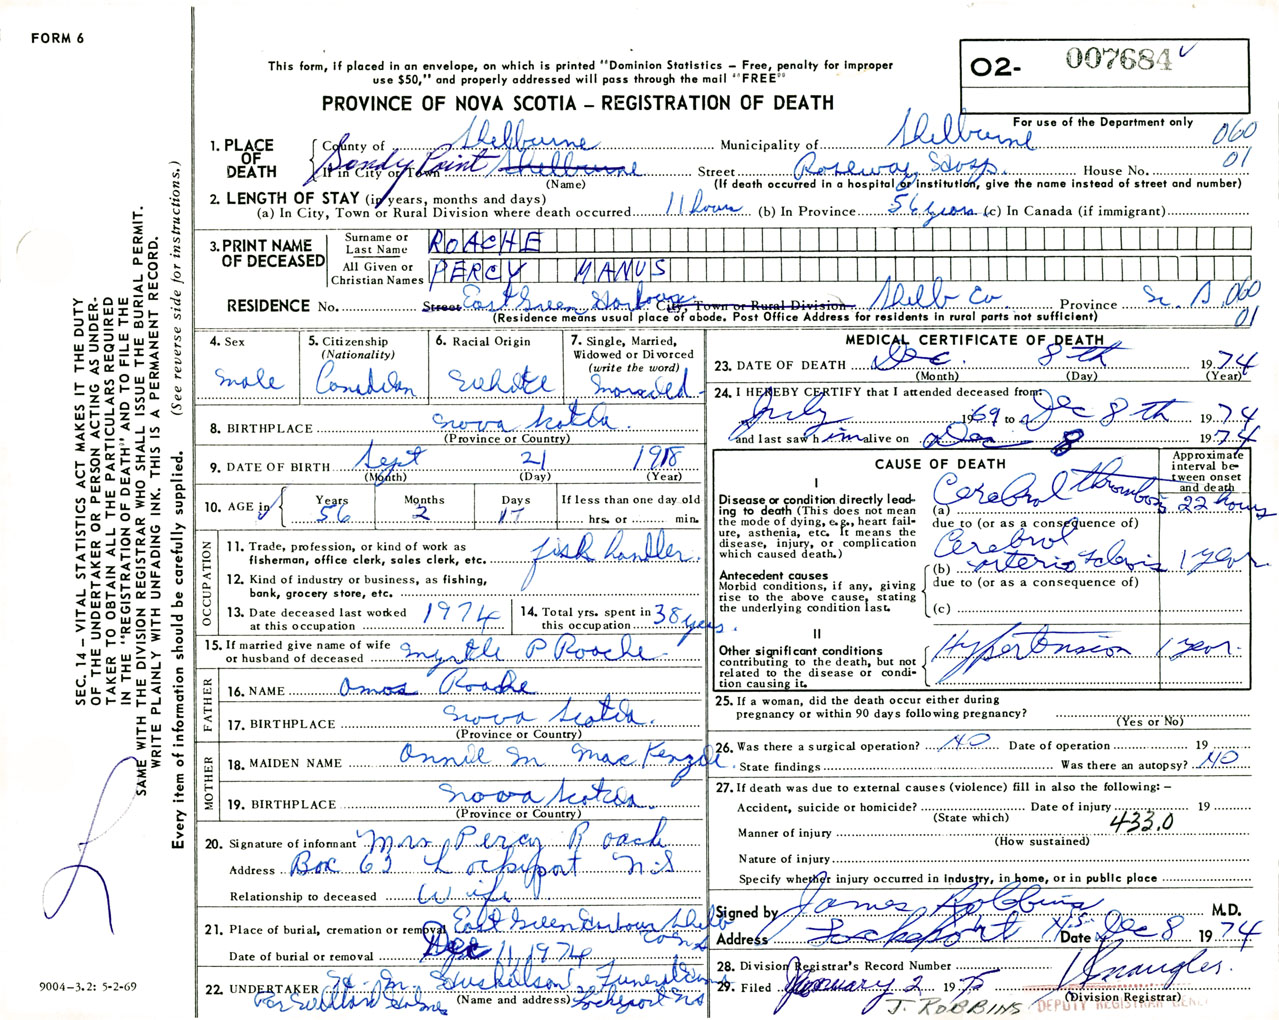 FORM 6
This form, if placed in an envelope, on which is printed "Dominion Statistics – Free, penalty for improper
use $50," and properly addressed will pass through the mail "FREE"
O2- 007684
PROVINCE OF NOVA SCOTIA – REGISTRATION OF DEATH
For use of the Department only
1. PLACE OF DEATH
County of Shelburne Municipality of Shelburne 060
If in City or Town Sandy Point Shelburne Street Roseway Hosp. House No. 01
(Name) (If death occurred in a hospital or institution, give the name instead of street and number)
2. LENGTH OF STAY (in years, months and days)
(a) In City, Town or Rural Division where death occurred 11 hours (b) In Province 56 years (c) In Canada (if immigrant)
3. PRINT NAME OF DECEASED
Surname or Last Name ROACHE
All Given or Christian Names PERCY MANUS
RESIDENCE No. Street East Green Harbour City, Town or Rural Division Shelb Co Province 060
(Residence means usual place of abode. Post Office Address for residents in rural parts not sufficient) 01
4. Sex
Male
5. Citizenship
(Nationality)
Canadian
6. Racial Origin
White
7. Single, Married,
Widowed or Divorced
(write the word)
Married
8. BIRTHPLACE Nova Scotia
(Province or Country)
9. DATE OF BIRTH Sept 21 1918
(Month) (Day) (Year)
10. AGE in Years Months Days If less than one day old
56 2 17 hrs. or min.
OCCUPATION
11. Trade, profession, or kind of work as
fisherman, office clerk, sales clerk, etc. fish handler
12. Kind of industry or business, as fishing,
bank, grocery store, etc.
13. Date deceased last worked
at this occupation 1974
14. Total yrs. spent in
this occupation 38 years.
15. If married give name of wife
or husband of deceased Myrtle P Roache
FATHER
16. NAME Amos Roache
17. BIRTHPLACE Nova Scotia.
(Province or Country)
MOTHER
18. MAIDEN NAME Annie M MacKenzie
19. BIRTHPLACE Nova Scotia
(Province or Country)
20. Signature of informant Mrs Percy Roach
Address Box 63 Lockeport N.S
Relationship to deceased Wife
21. Place of burial, cremation or removal East Green Harbour Shelb Co N S
Date of burial or removal Dec 11, 1974
22. UNDERTAKER H. M. Huskilson Funeral
(Name and address) Lockeport NS
MEDICAL CERTIFICATE OF DEATH
23. DATE OF DEATH Dec. 8th 1974
(Month) (Day) (Year)
24. I HEREBY CERTIFY that I attended deceased from:
July 1969 to Dec 8th 1974
and last saw him alive on Dec 8 1974
CAUSE OF DEATH
Approximate
interval be-
tween onset
and death
I
Disease or condition directly lead-
ing to death (This does not mean
the mode of dying, e.g., heart fail-
ure, asthenia, etc. It means the
disease, injury, or complication
which caused death.)
(a) Cerebral thrombosis 22 hours
due to (or as a consequence of)
Antecedent causes
Morbid conditions, if any, giving
rise to the above cause, stating
the underlying condition last.
(b) Cerebral arterio sclerosis 1 year
due to (or as a consequence of)
(c)
II
Other significant conditions
contributing to the death, but not
related to the disease or condi-
tion causing it.
Hypertension 1 year.
25. If a woman, did the death occur either during
pregnancy or within 90 days following pregnancy?
(Yes or No)
26. Was there a surgical operation? NO Date of operation 19
State findings Was there an autopsy? NO
27. If death was due to external causes (violence) fill in also the following: –
Accident, suicide or homicide? Date of injury 19
(State which) 433.0
Manner of injury
(How sustained)
Nature of injury
Specify whether injury occurred in industry, in home, or in public place
Signed by James Robbins M.D.
Address Lockeport N.S. Date Dec 8 1974
28. Division Registrar's Record Number
29. Filed January 2 1975
(Division Registrar)
J. ROBBINS
DEPUTY REGISTRAR GENERAL
SEC. 14 – VITAL STATISTICS ACT MAKES IT THE DUTY
OF THE UNDERTAKER OR PERSON ACTING AS UNDER-
TAKER TO OBTAIN ALL THE PARTICULARS REQUIRED
IN THE "REGISTRATION OF DEATH" AND TO FILE THE
SAME WITH THE DIVISION REGISTRAR WHO SHALL ISSUE THE BURIAL PERMIT.
WRITE PLAINLY WITH UNFADING INK. THIS IS A PERMANENT RECORD.
Every item of information should be carefully supplied. (See reverse side for instructions.)
9004–3.2: 5-2-69